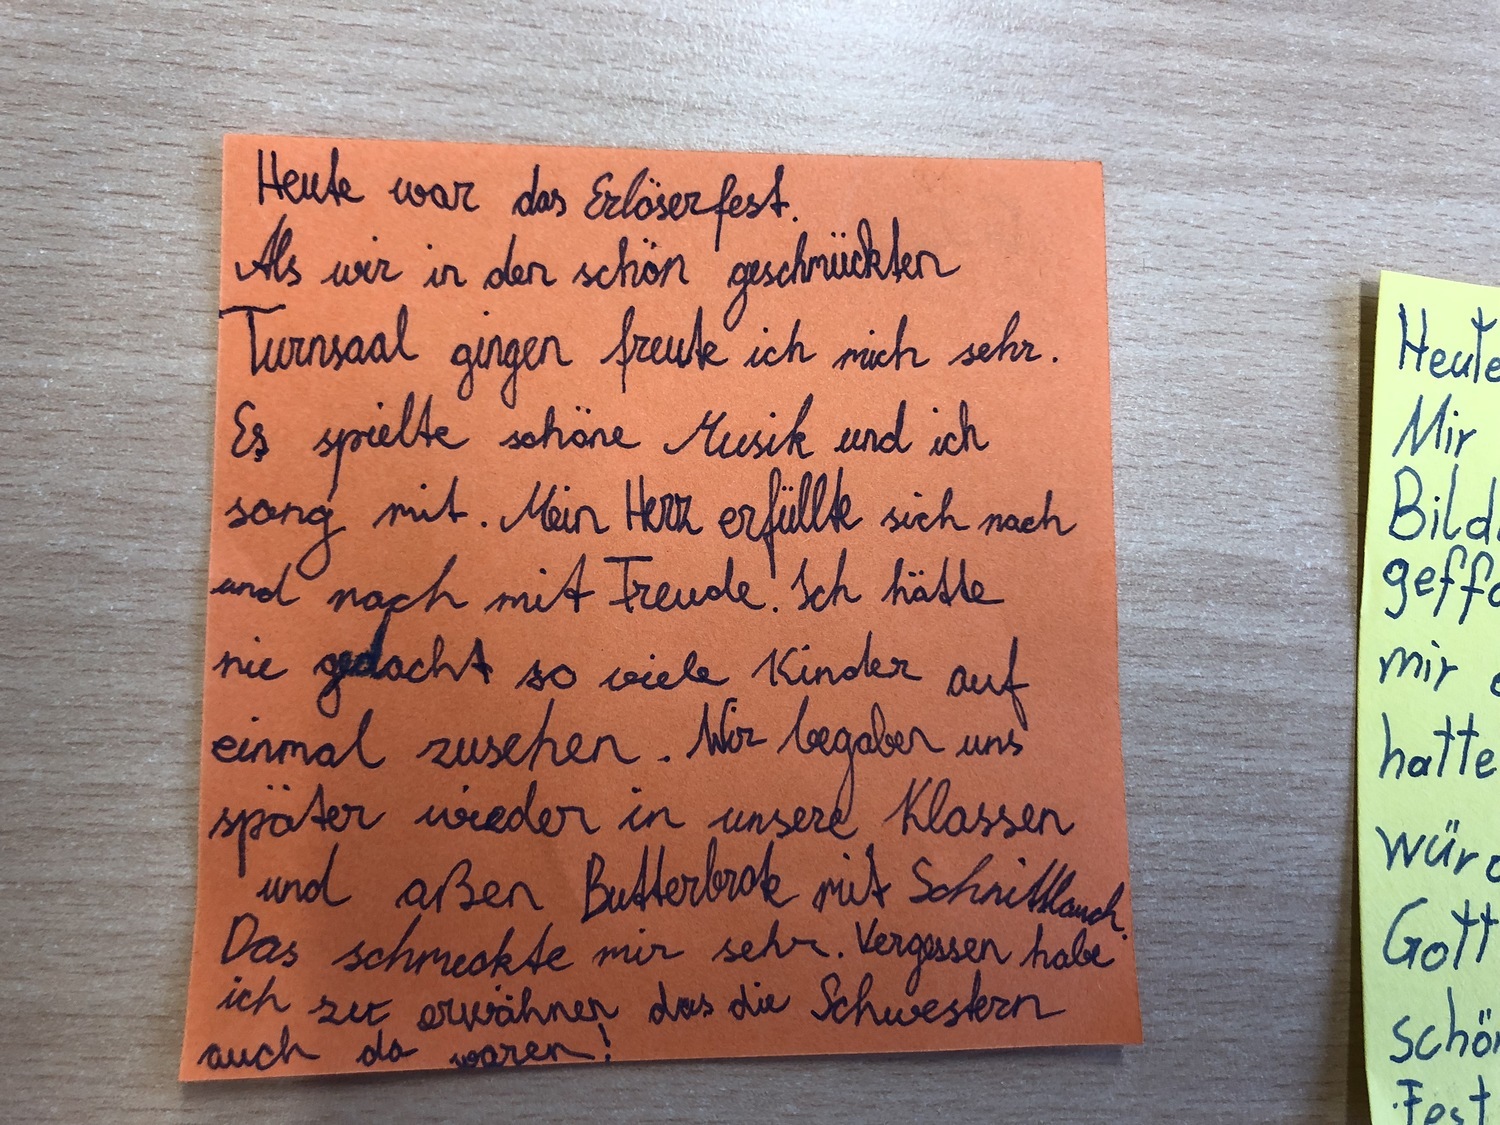 Heute war das Erlöserfest.
Als wir in den schön geschmückten
Turnsaal gingen freute ich mich sehr.
Es spielte schöne Musik und ich
sang mit. Mein Herz erfüllte sich nach
und nach mit Freude. Ich hätte
nie gedacht so viele Kinder auf
einmal zusehen. Wir begaben uns
später wieder in unsere Klassen
und aßen Butterbrote mit Schnittlauch.
Das schmeckte mir sehr. Vergessen habe
ich zu erwähnen das die Schwestern
auch da waren!
Heute
Mir
Bild
geff
mir
hatte
würd
Gott
schön
Fest